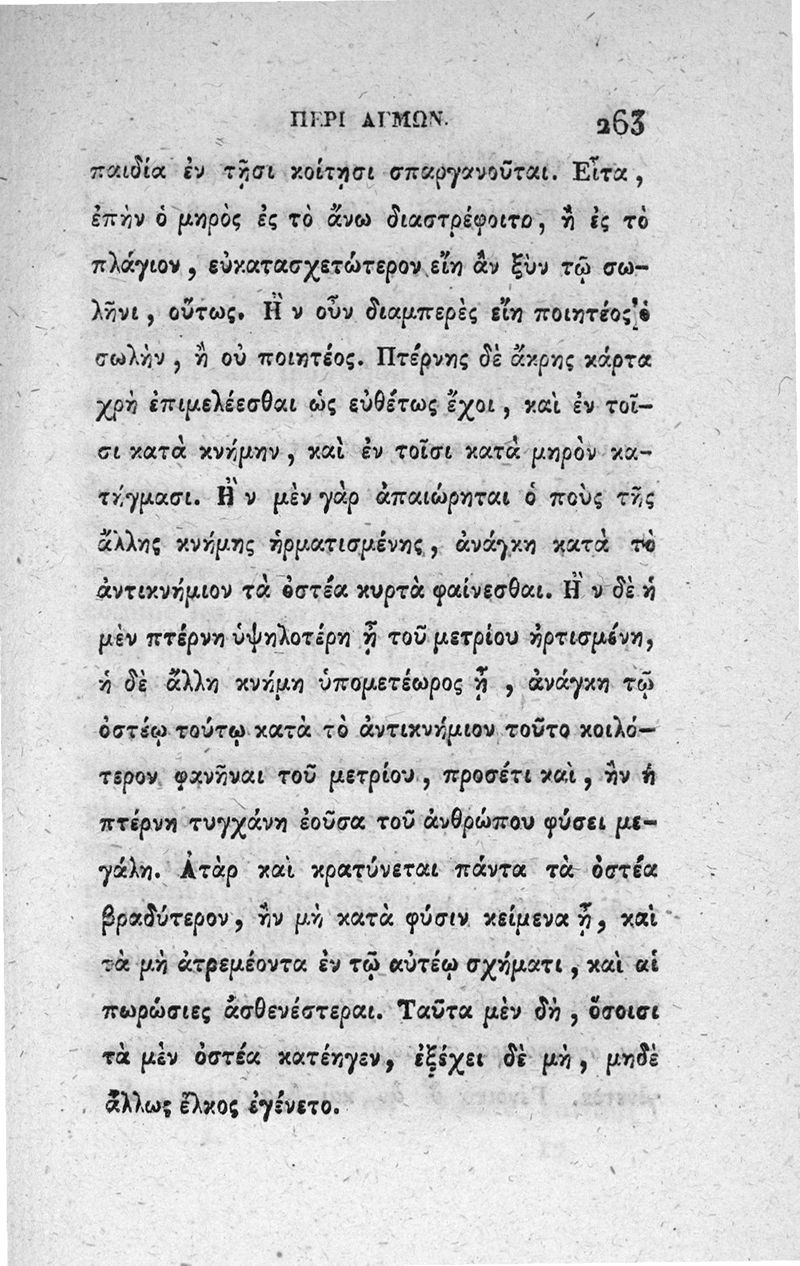 ΠΕΡΙ ΑΓΜΩΝ. 263
παιδία ἐν τῇσι κοίτῃσι σπαργανοῦται. Εἶτα,
ἐπὴν ὁ μηρὸς ἐς τὸ ἄνω διαστρέφοιτο, ἢ ἐς τὸ
πλάγιον, εὐκατασχετώτερον εἴη ἂν ξὺν τῷ σω-
λῆνι, οὕτως. Ἢν οὖν διαμπερὲς εἴη ποιητέος ὁ
σωλὴν, ἢ οὐ ποιητέος. Πτέρνης δὲ ἄκρης κάρτα
χρὴ ἐπιμελέεσθαι ὡς εὐθέτως ἔχοι, καὶ ἐν τοῖ-
σι κατὰ κνήμην, καὶ ἐν τοῖσι κατὰ μηρὸν κα-
τήγμασι. Ἢν μὲν γὰρ ἀπαιώρηται ὁ ποὺς τῆς
ἄλλης κνήμης ἡρματισμένης, ἀνάγκη κατὰ τὸ
ἀντικνήμιον τὰ ὀστέα κυρτὰ φαίνεσθαι. Ἢν δὲ ἡ
μὲν πτέρνη ὑψηλοτέρη ᾖ τοῦ μετρίου ἠρτισμένη,
ἡ δὲ ἄλλη κνήμη ὑπομετέωρος ᾖ, ἀνάγκη τῷ
ὀστέῳ τούτῳ κατὰ τὸ ἀντικνήμιον τοῦτο κοιλό-
τερον φανῆναι τοῦ μετρίου, προσέτι καὶ, ἢν ἡ
πτέρνη τυγχάνῃ ἐοῦσα τοῦ ἀνθρώπου φύσει με-
γάλη. Ἀτὰρ καὶ κρατύνεται πάντα τὰ ὀστέα
βραδύτερον, ἢν μὴ κατὰ φύσιν κείμενα ᾖ, καὶ
τὰ μὴ ἀτρεμέοντα ἐν τῷ αὐτέῳ σχήματι, καὶ αἱ
πωρώσιες ἀσθενέστεραι. Ταῦτα μὲν δὴ, ὅσοισι
τὰ μὲν ὀστέα κατέηγεν, ἐξέχει δὲ μὴ, μηδὲ
ἄλλως ἕλκος ἐγένετο.